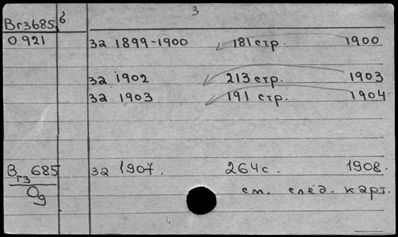 3
Вгз685 б
0921 за 1899-1900 181 стр. 1900
за 1902 213 стр. 1903
за 1903 191 стр. 1904
Вгз 685 за 1907. 264 с. 1908.
Од см. след. карт.